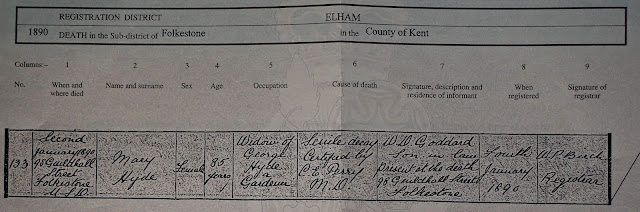 REGISTRATION DISTRICT ELHAM
1890 DEATH in the Sub-district of Folkestone in the County of Kent
Columns:- 1 2 3 4 5 6 7 8 9
No. When and where died Name and surname Sex Age Occupation Cause of death Signature, description and residence of informant When registered Signature of registrar
133
Second
January 1890
98 Guildhall
Street
Folkestone
U.S.D.
Mary
Hyde
Female
85
years
Widow of
George
Hyde
a
Gardener
Senile decay
Certified by
C.E. Perry
M.D.
W.D. Goddard
Son in law
present at the death
98 Guildhall Street
Folkestone
Fourth
January
1890
W.P. Birch
Registrar